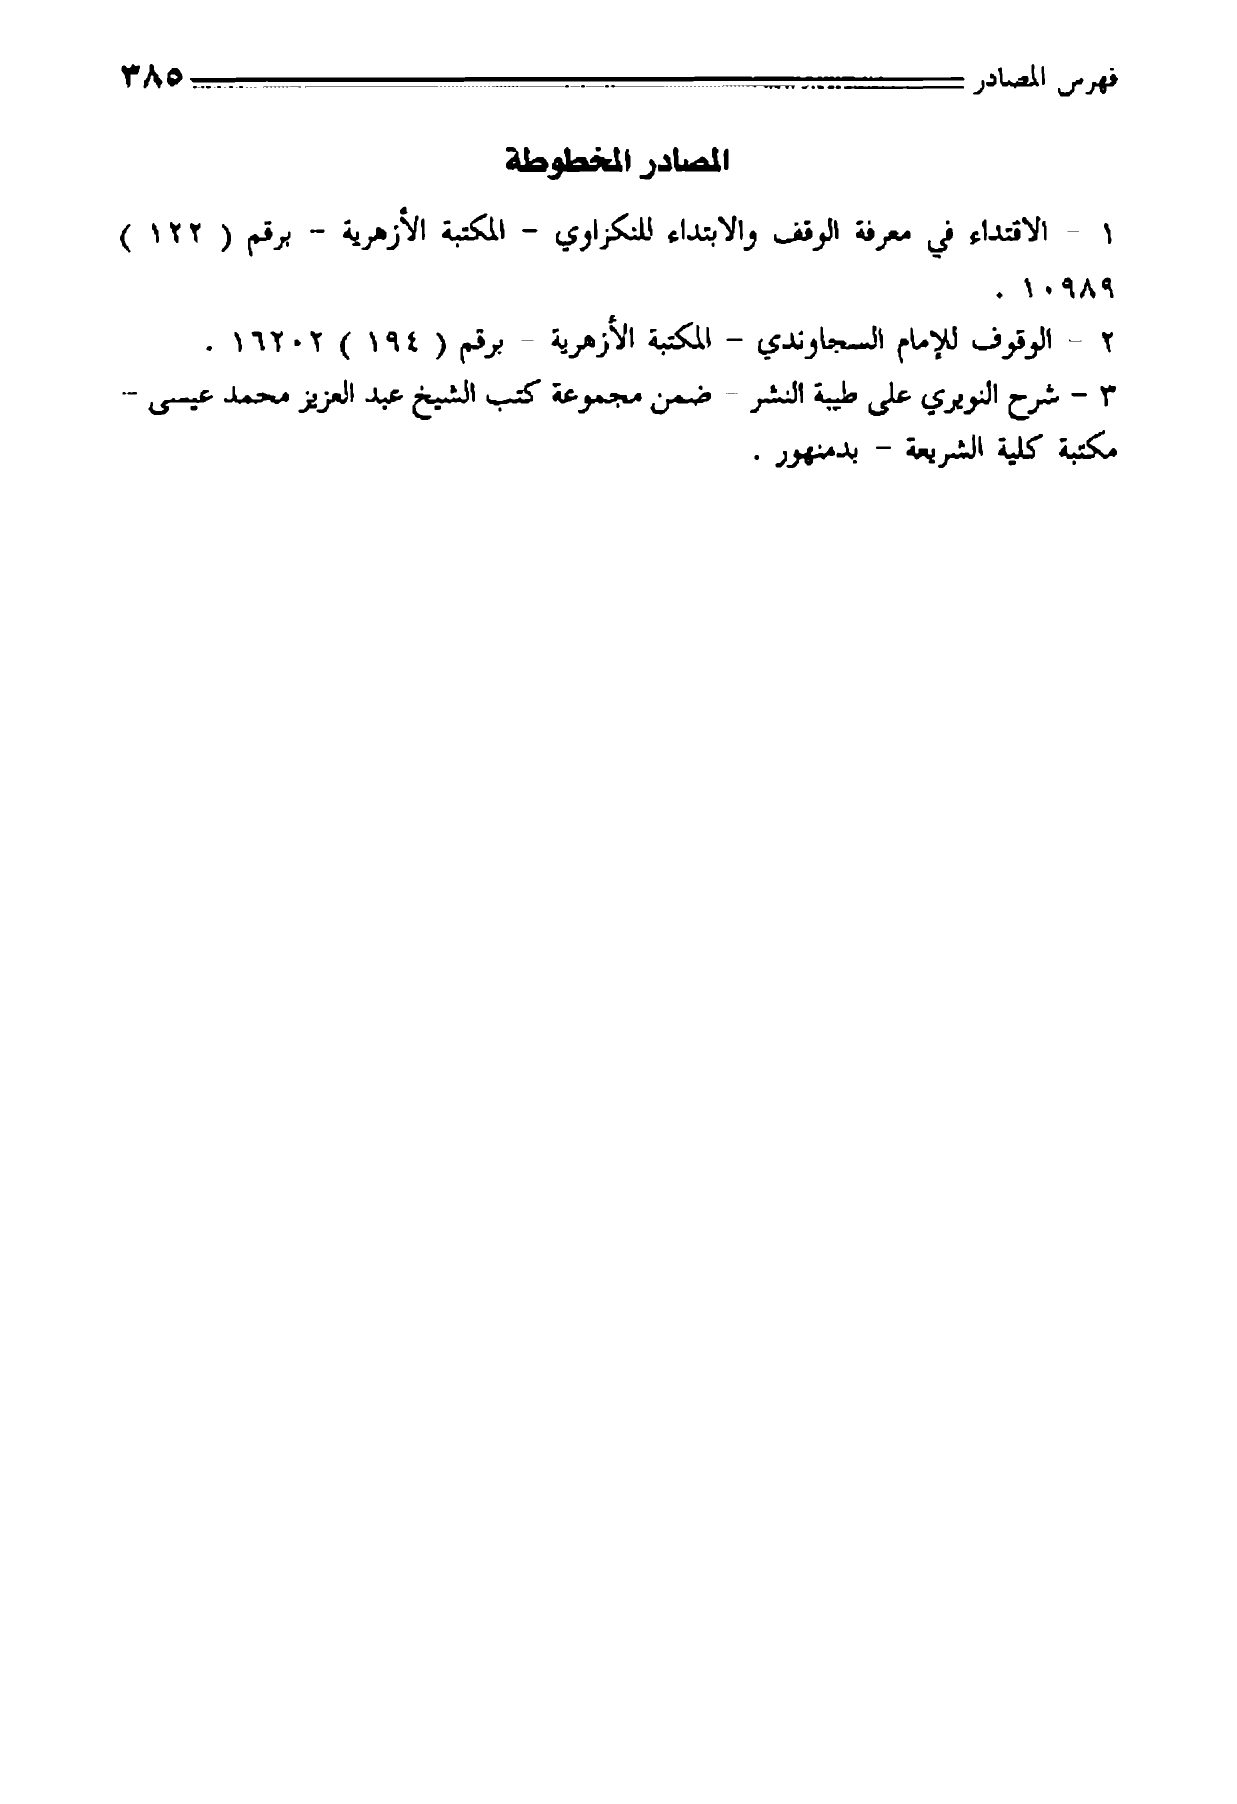 فهرس المصادر ٣٨٥
المصادر المخطوطة
١ - الاقتداء في معرفة الوقف والابتداء للنكزاوي - المكتبة الأزهرية - برقم ( ١٢٢ )
١٠٩٨٩ .
٢ - الوقوف للإمام السجاوندي - المكتبة الأزهرية - برقم ( ١٩٤ ) ١٦٢٠٢ .
٣ - شرح النويري على طيبة النشر - ضمن مجموعة كتب الشيخ عبد العزيز محمد عيسى -
مكتبة كلية الشريعة - بدمنهور .